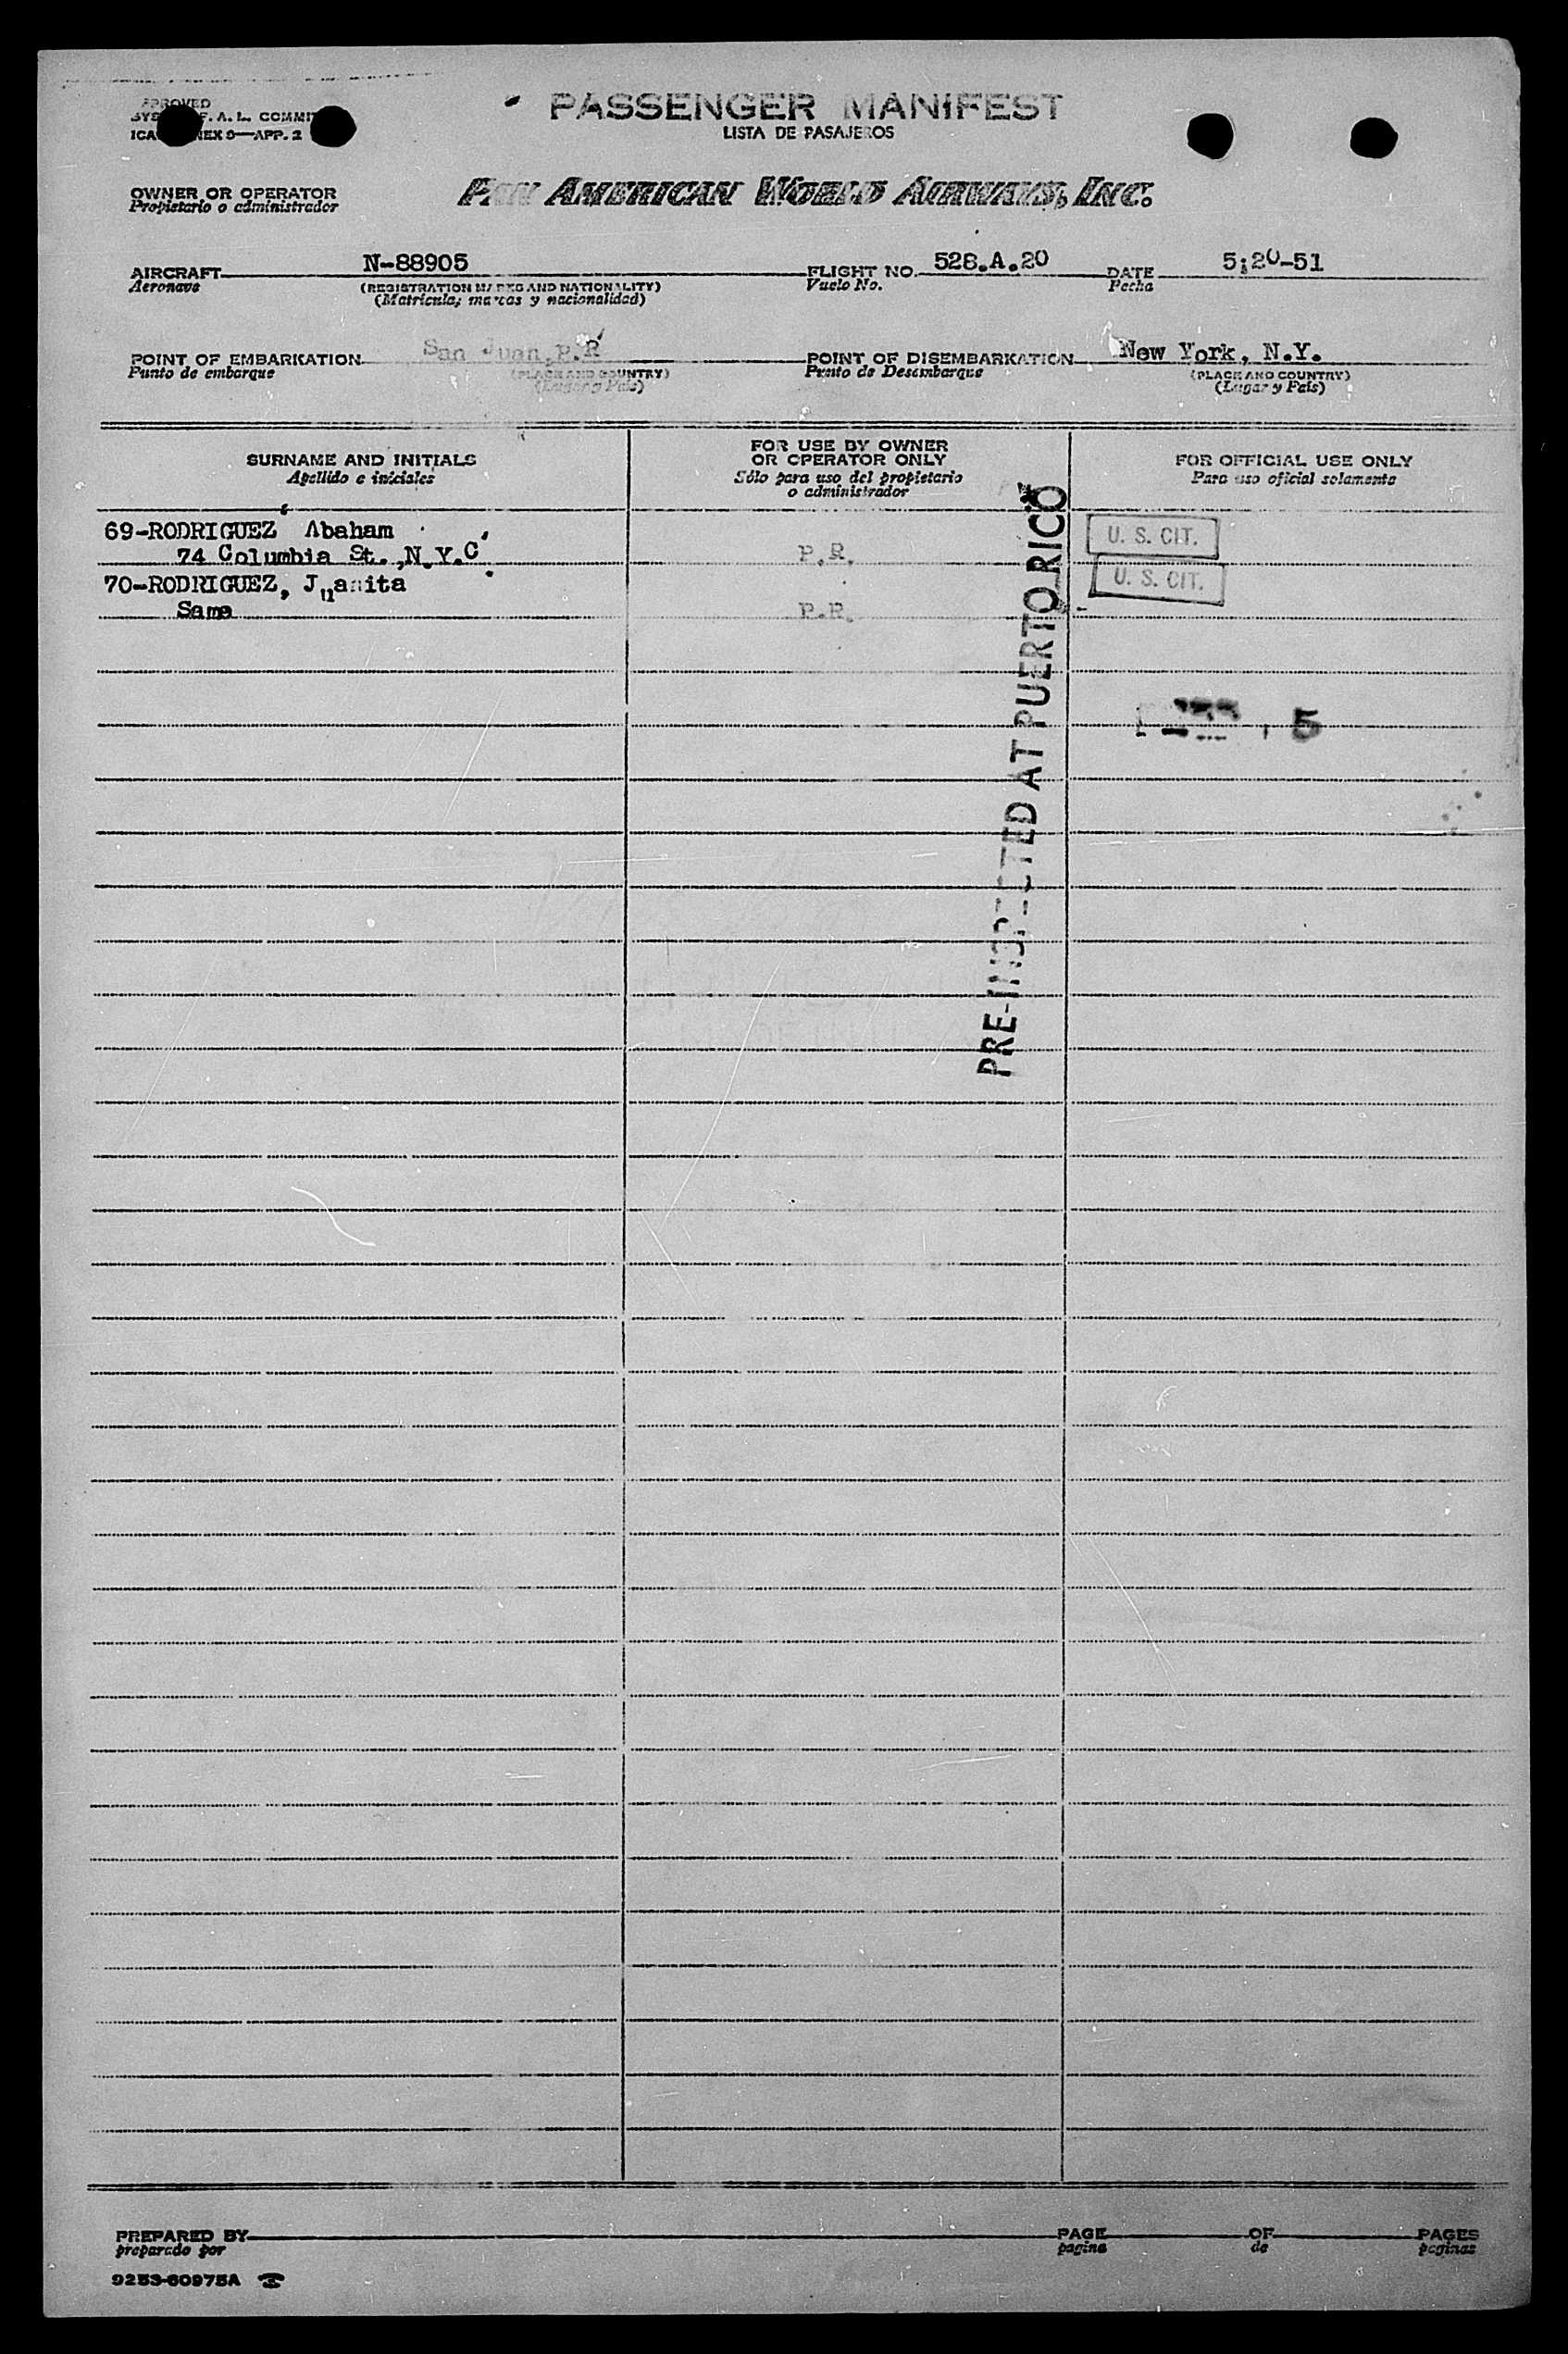 APPROVED
F. A. L. COMMIT
ICA NEX 9—APP. 2
PASSENGER MANIFEST
LISTA DE PASAJEROS
OWNER OR OPERATOR
Propietario o administrador
PAN AMERICAN WORLD AIRWAYS, INC.
AIRCRAFT N-88905 FLIGHT NO. 528.A.20 DATE 5;20-51
Aeronave (REGISTRATION MARKS AND NATIONALITY) Vuelo No. Fecha
(Matrícula, marcas y nacionalidad)
POINT OF EMBARKATION San Juan,P.R POINT OF DISEMBARKATION New York, N.Y.
Punto de embarque (PLACE AND COUNTRY) Punto de Desembarque (PLACE AND COUNTRY)
(Lugar y País) (Lugar y País)
SURNAME AND INITIALS
Apellido e iniciales
FOR USE BY OWNER
OR OPERATOR ONLY
Sólo para uso del propietario
o administrador
FOR OFFICIAL USE ONLY
Para uso oficial solamente
69-RODRIGUEZ Abaham
74 Columbia St.,N.Y.C P.R. U. S. CIT.
70-RODRIGUEZ, Juanita U. S. CIT.
Same P.R.
PRE-INSPECTED AT PUERTO RICO
PREPARED BY PAGE OF PAGES
preparado por pagina de paginas
9253-60975A